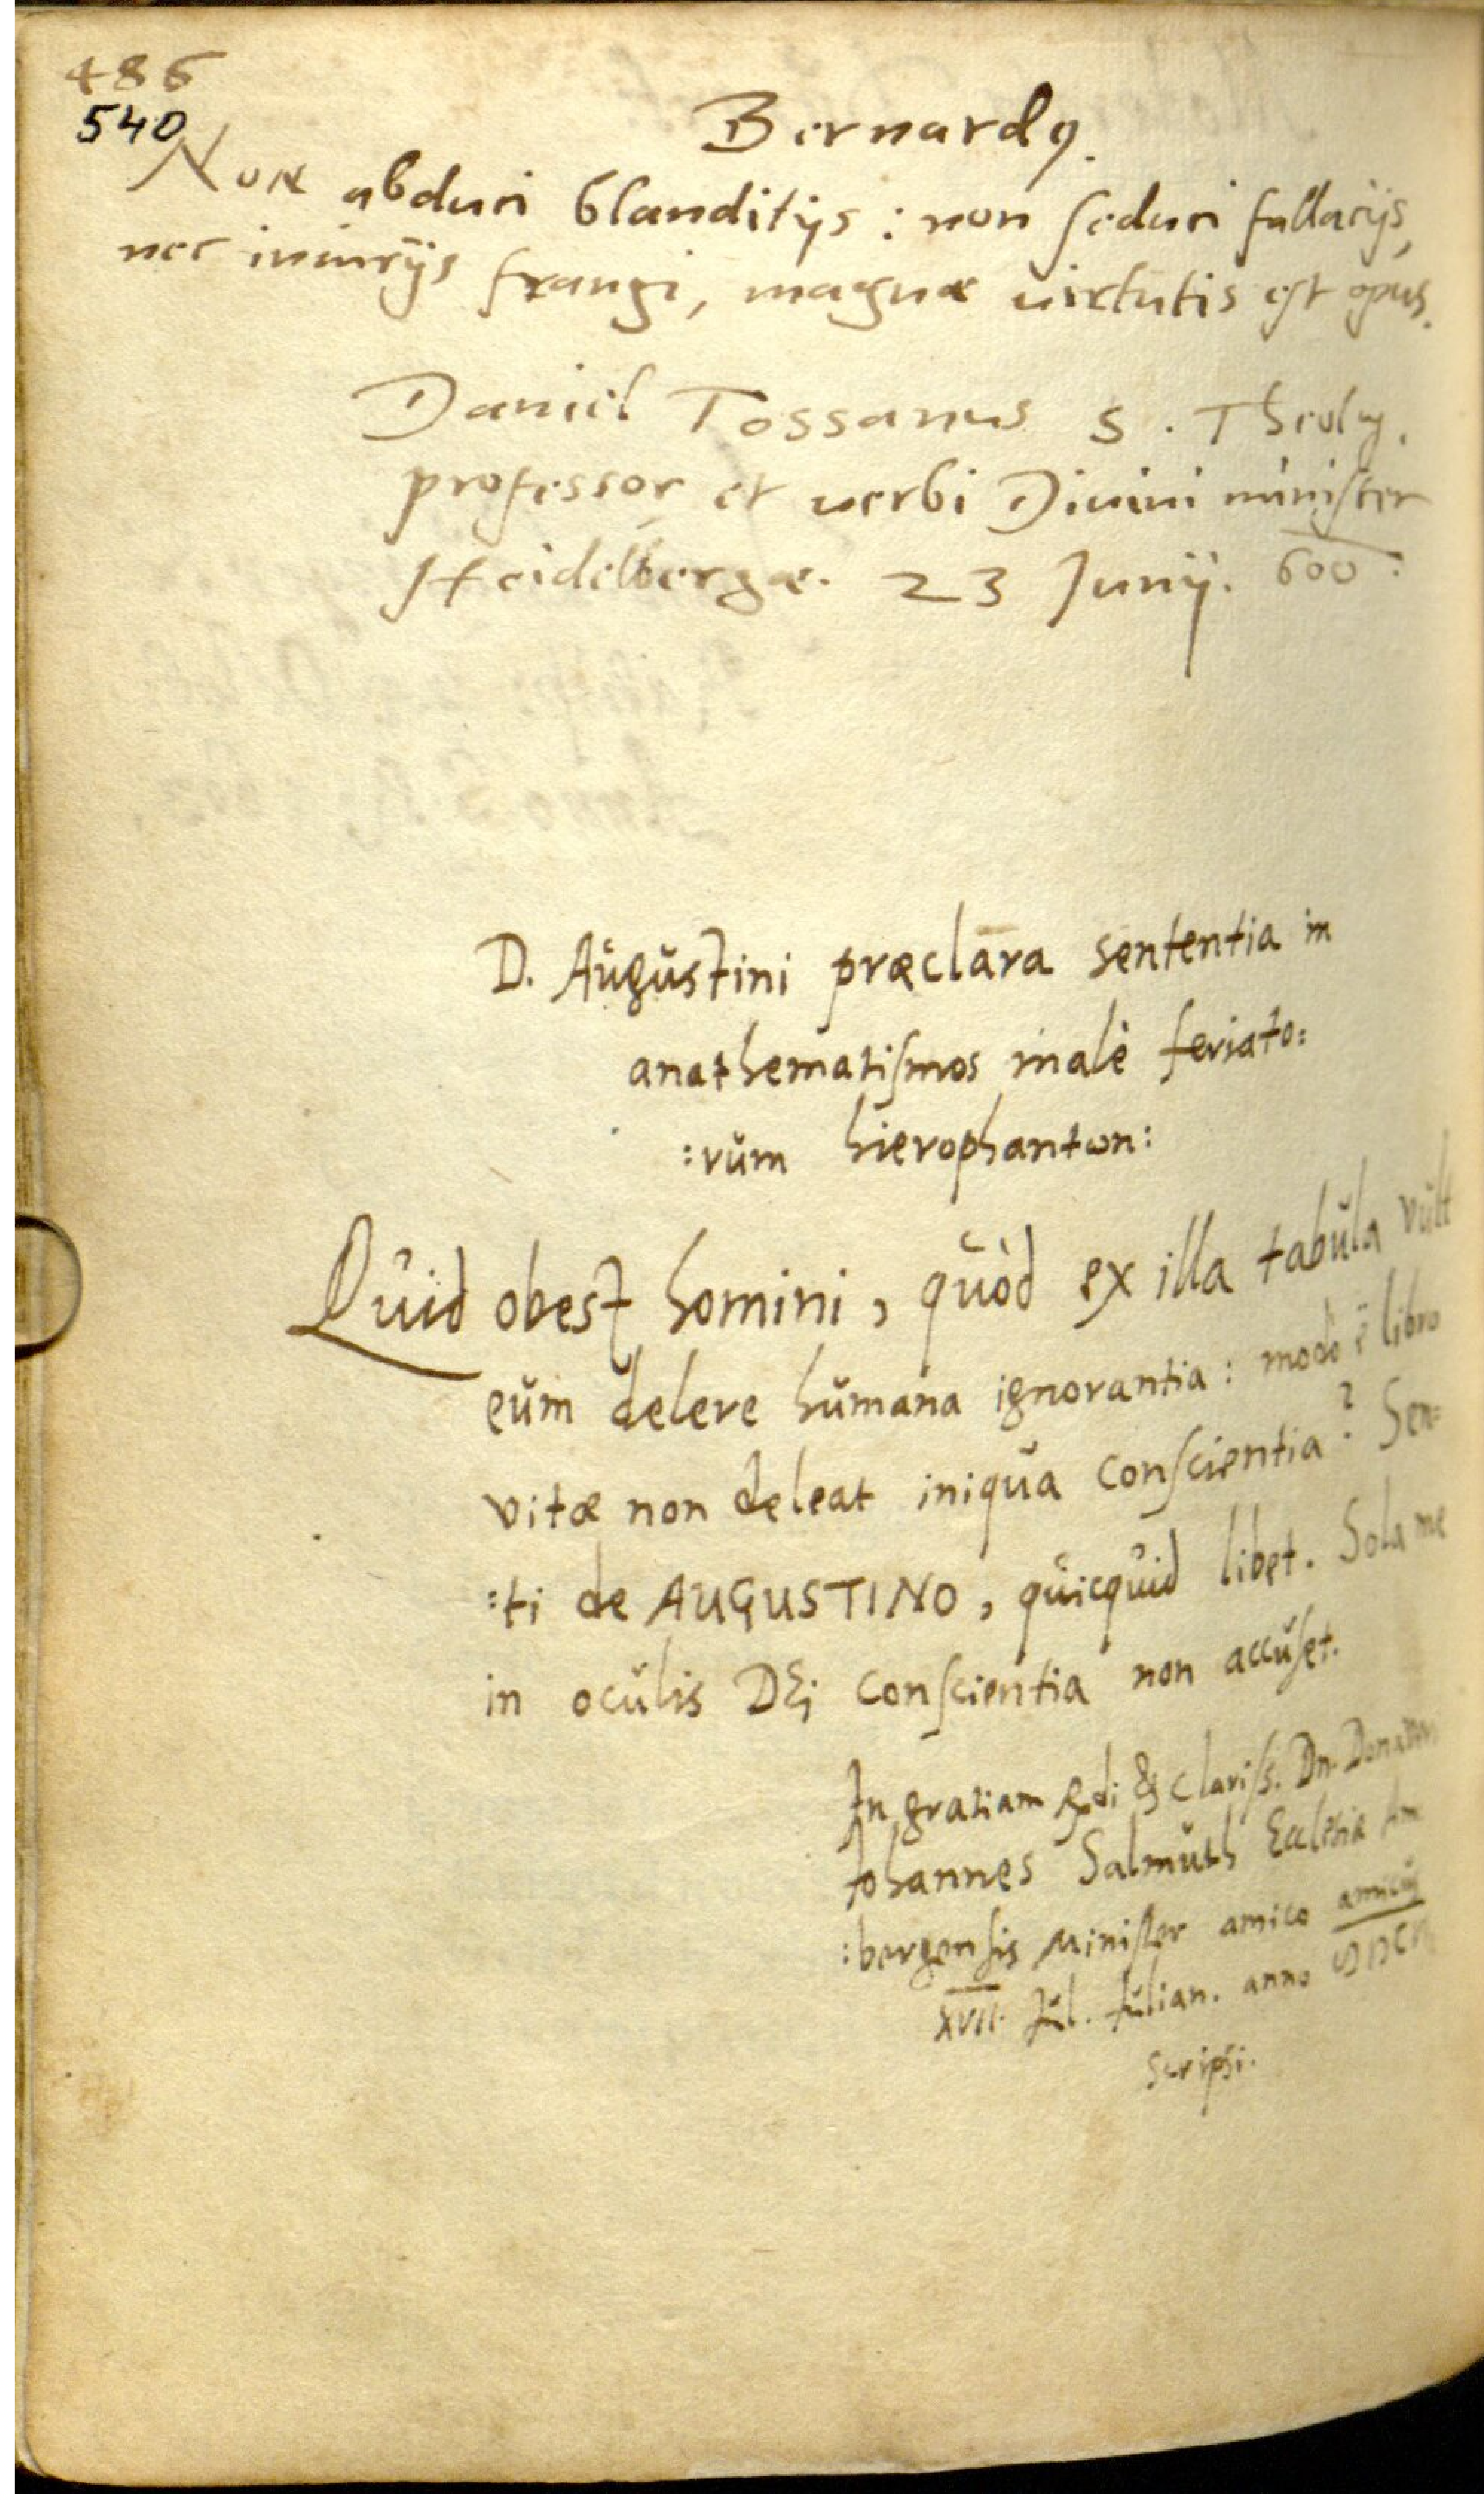 486
540
Bernardꝯ.
Non abduci blanditijs : non seduci fallacijs,
nec iniurijs frangi, magnæ uirtutis est opus.
Daniel Tossanus S. Theolog.
professor et uerbi Diuini minister
Heidelbergæ. 23 Junij. 600.
D. Augustini præclara sententia in
anathematismos malè feriato:
:rum hierophantωn:
Quid obest homini, quòd ex illa tabula vult
eum delere humana ignorantia: modò è libro
vitæ non deleat iniqua conscientia? Sen:
:ti de AUGUSTINO, quicquid libet. Sola me
in oculis DEi conscientia non accuset.
In gratiam & Clariss. Dn.
Johannes Salmuth Ecclesiæ Am
:bergensis Minister amico
XVII. Jul. Julian. anno
scripsi.